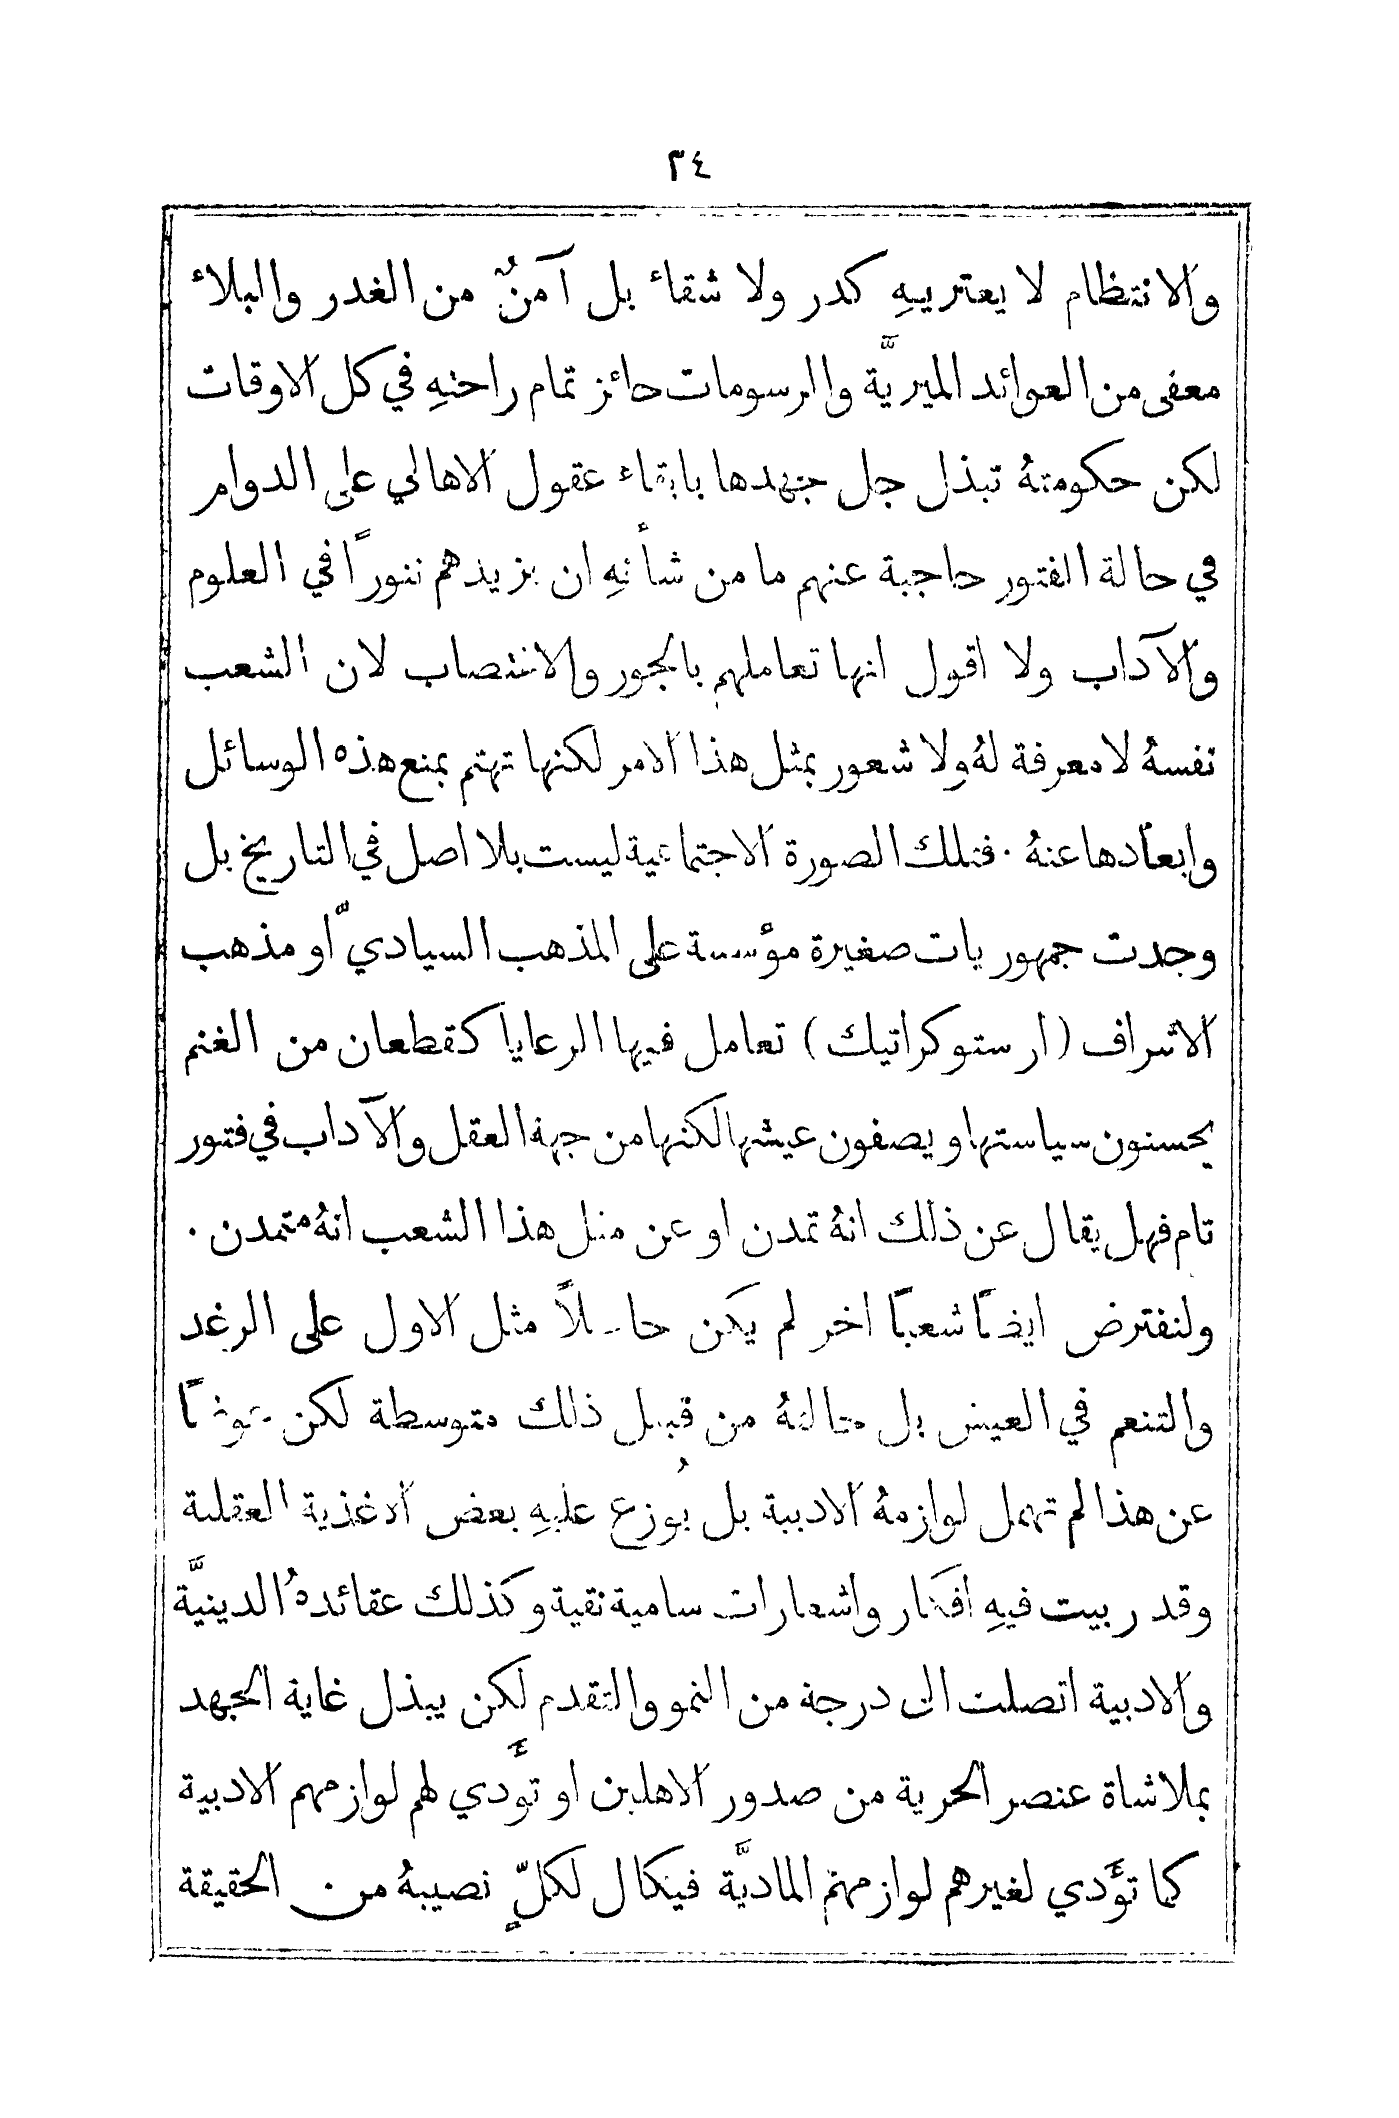 ٣٤
والانتظام لا يعتريهِ كدر ولا شقاء بل آمنٌ من الغدر والبلاء
معفى من العوائد الميريَّة والرسومات حائز تمام راحتهِ في كل الاوقات
لكن حكومتهُ تبذل جل جهدها بابقاء عقول الاهالي على الدوام
في حالة الفتور حاجبة عنهم ما من شأنهِ ان يزيدهم تنورًا في العلوم
والآداب ولا اقول انها تعاملهم بالجور والاغتصاب لان الشعب
نفسهُ لا معرفة لهُ ولا شعور بمثل هذا الامر لكنها تهتم بمنع هذه الوسائل
وابعادها عنهُ . فتلك الصورة الاجتماعية ليست بلا اصل في التاريخ بل
وجدت جمهوريات صغيرة مؤسسة على المذهب السياديّ او مذهب
الاشراف (ارستوكراتيك) تعامل فيها الرعايا كقطعان من الغنم
يحسنون سياستها ويصفون عيشها لكنها من جهة العقل والآداب في فتور
تام فهل يقال عن ذلك انهُ تمدن او عن مثل هذا الشعب انهُ متمدن .
ولنفترض ايضًا شعبًا اخر لم يكن حاصلاً مثل الاول على الرغد
والتنعم في العيش بل حالتهُ من قبل ذلك متوسطة لكن عوضًا
عن هذا لم تهمل لوازمهُ الادبية بل يُوزع عليهِ بعض الاغذية العقلية
وقد ربيت فيهِ افكار واشعارات سامية نقية وكذلك عقائدهُ الدينيَّة
والادبية اتصلت الى درجة من النمو والتقدم لكن يبذل غاية الجهد
بملاشاة عنصر الحرية من صدور الاهلين او تؤَّدي لهم لوازمهم الادبية
كما تؤَّدي لغيرهم لوازمهم الماديَّة فيكال لكلٍّ نصيبهُ من الحقيقة